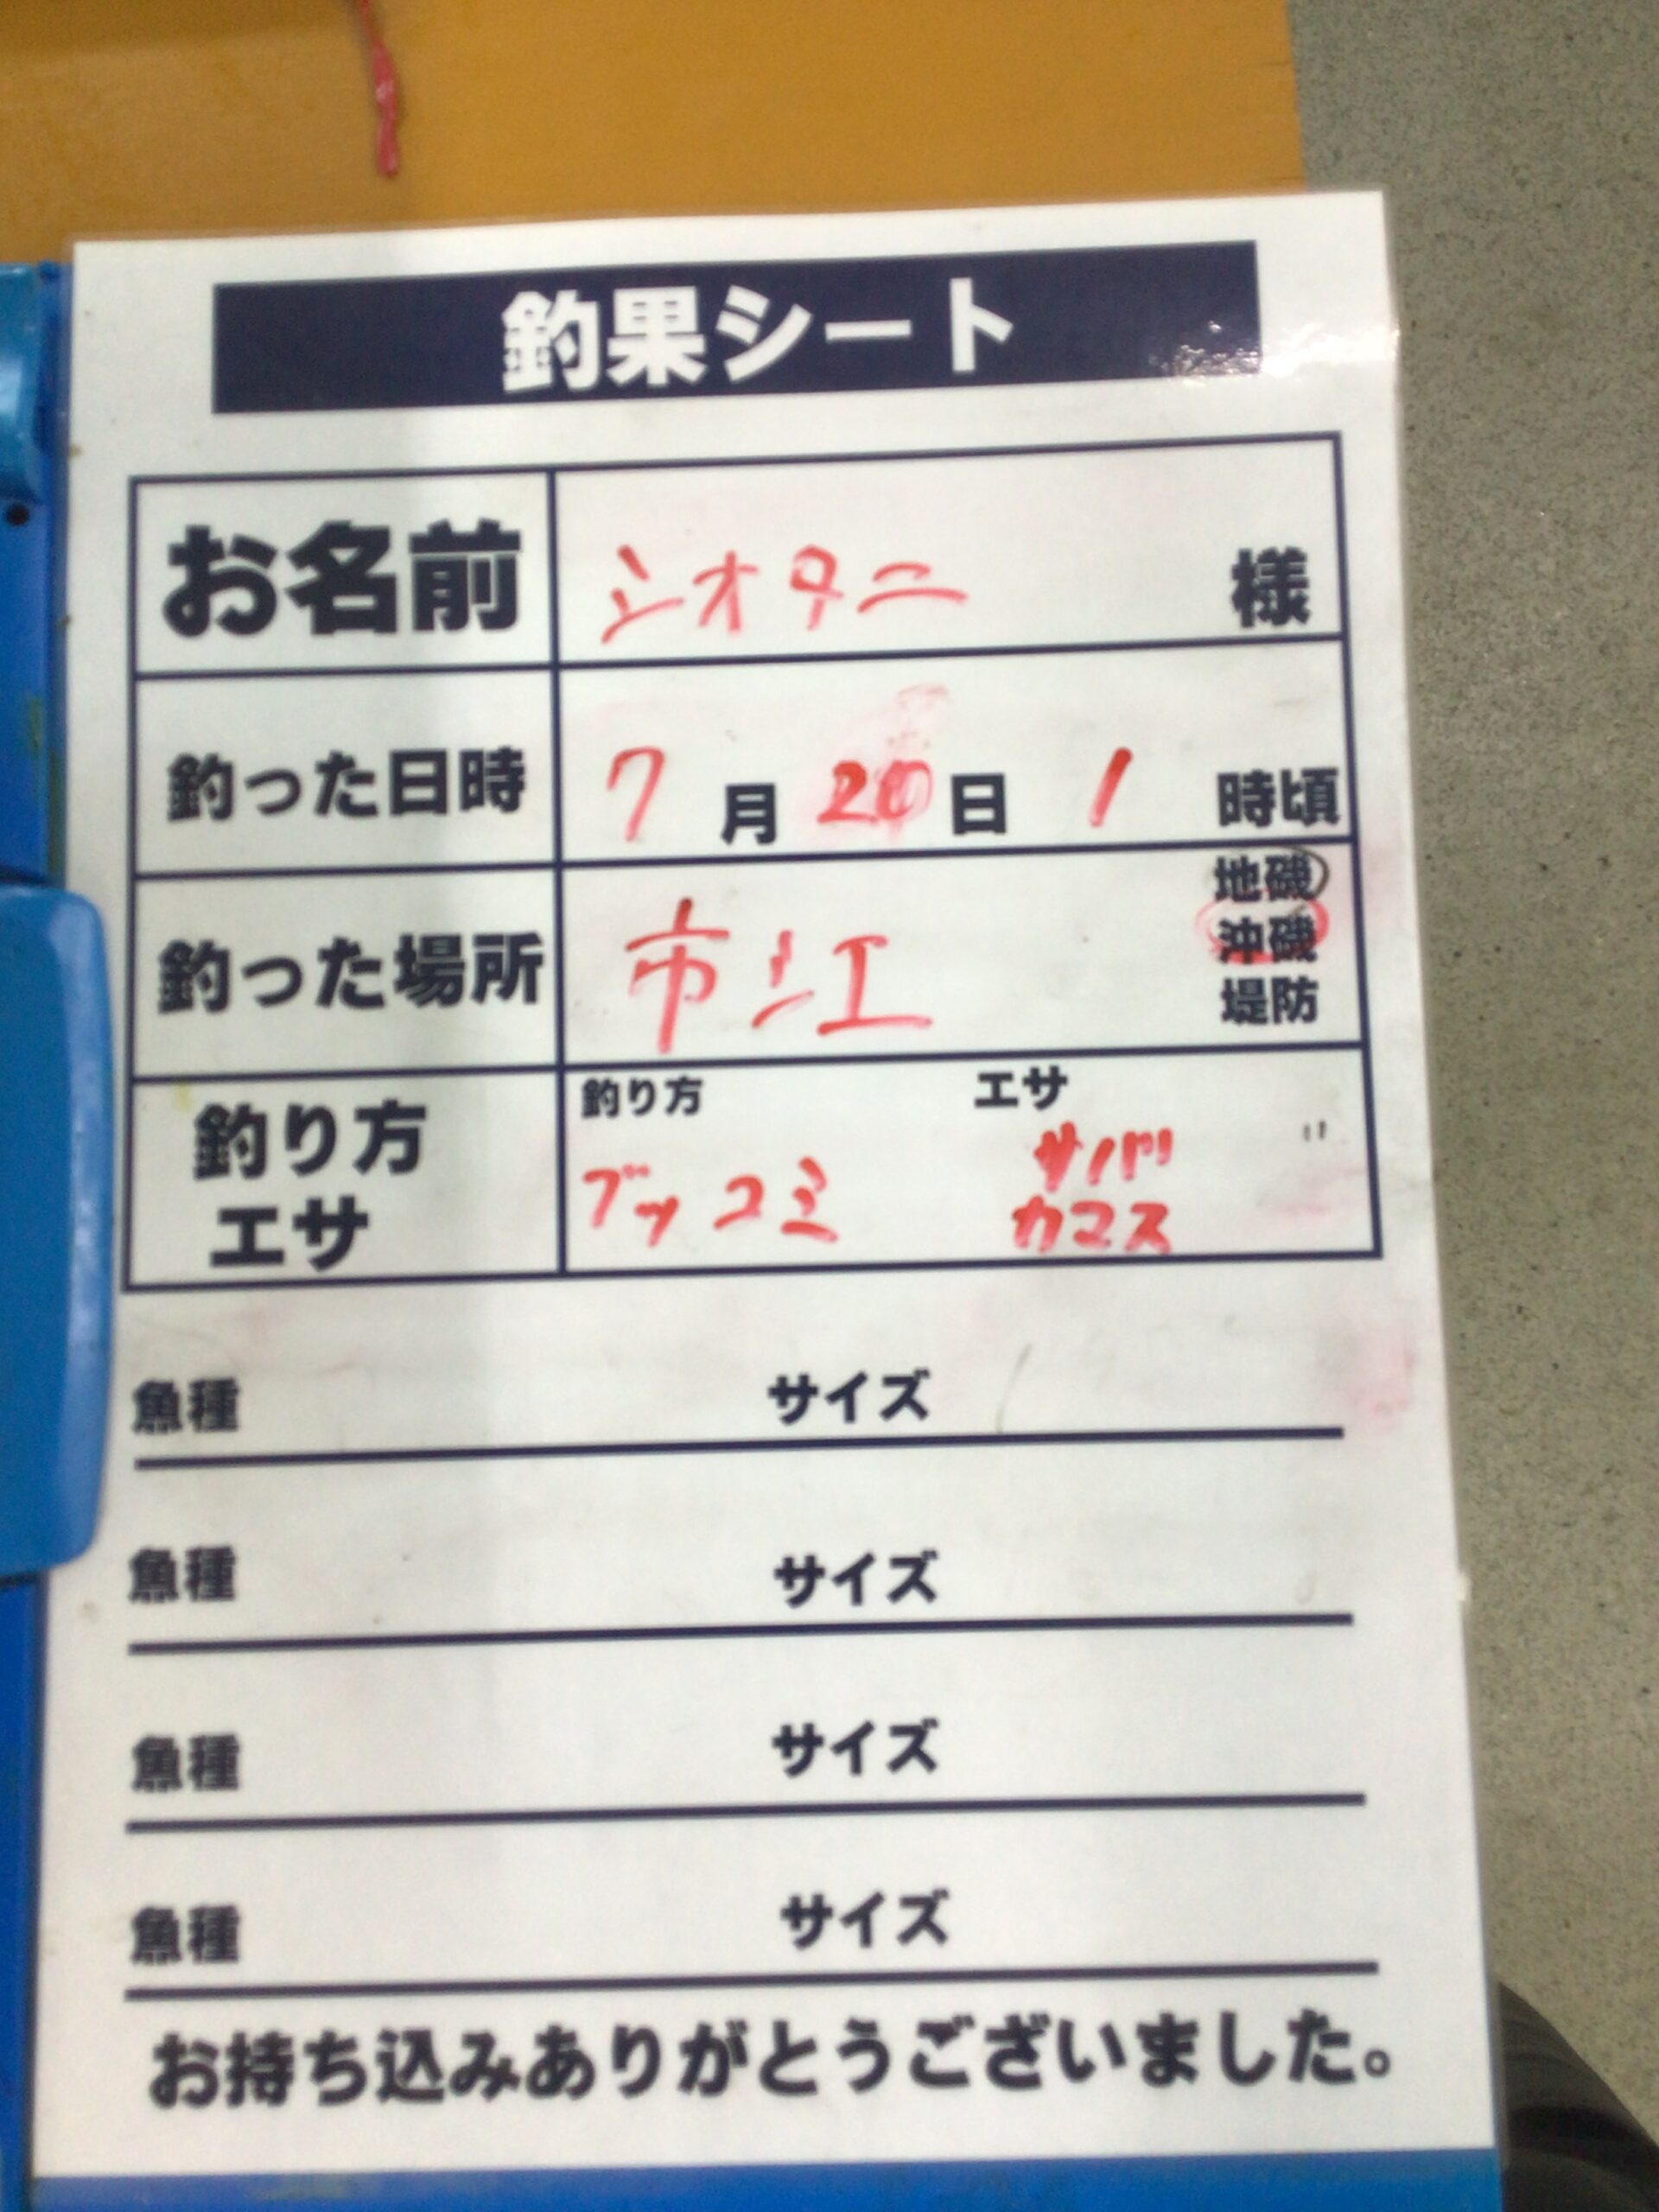 釣果シート
お名前 シオタニ 様
釣った日時 7月20日 1 時頃
釣った場所 市江 地磯
沖磯
堤防
釣り方 エサ
釣り方 ブッコミ サバ
エサ カマス
魚種 サイズ
魚種 サイズ
魚種 サイズ
魚種 サイズ
お持ち込みありがとうございました。